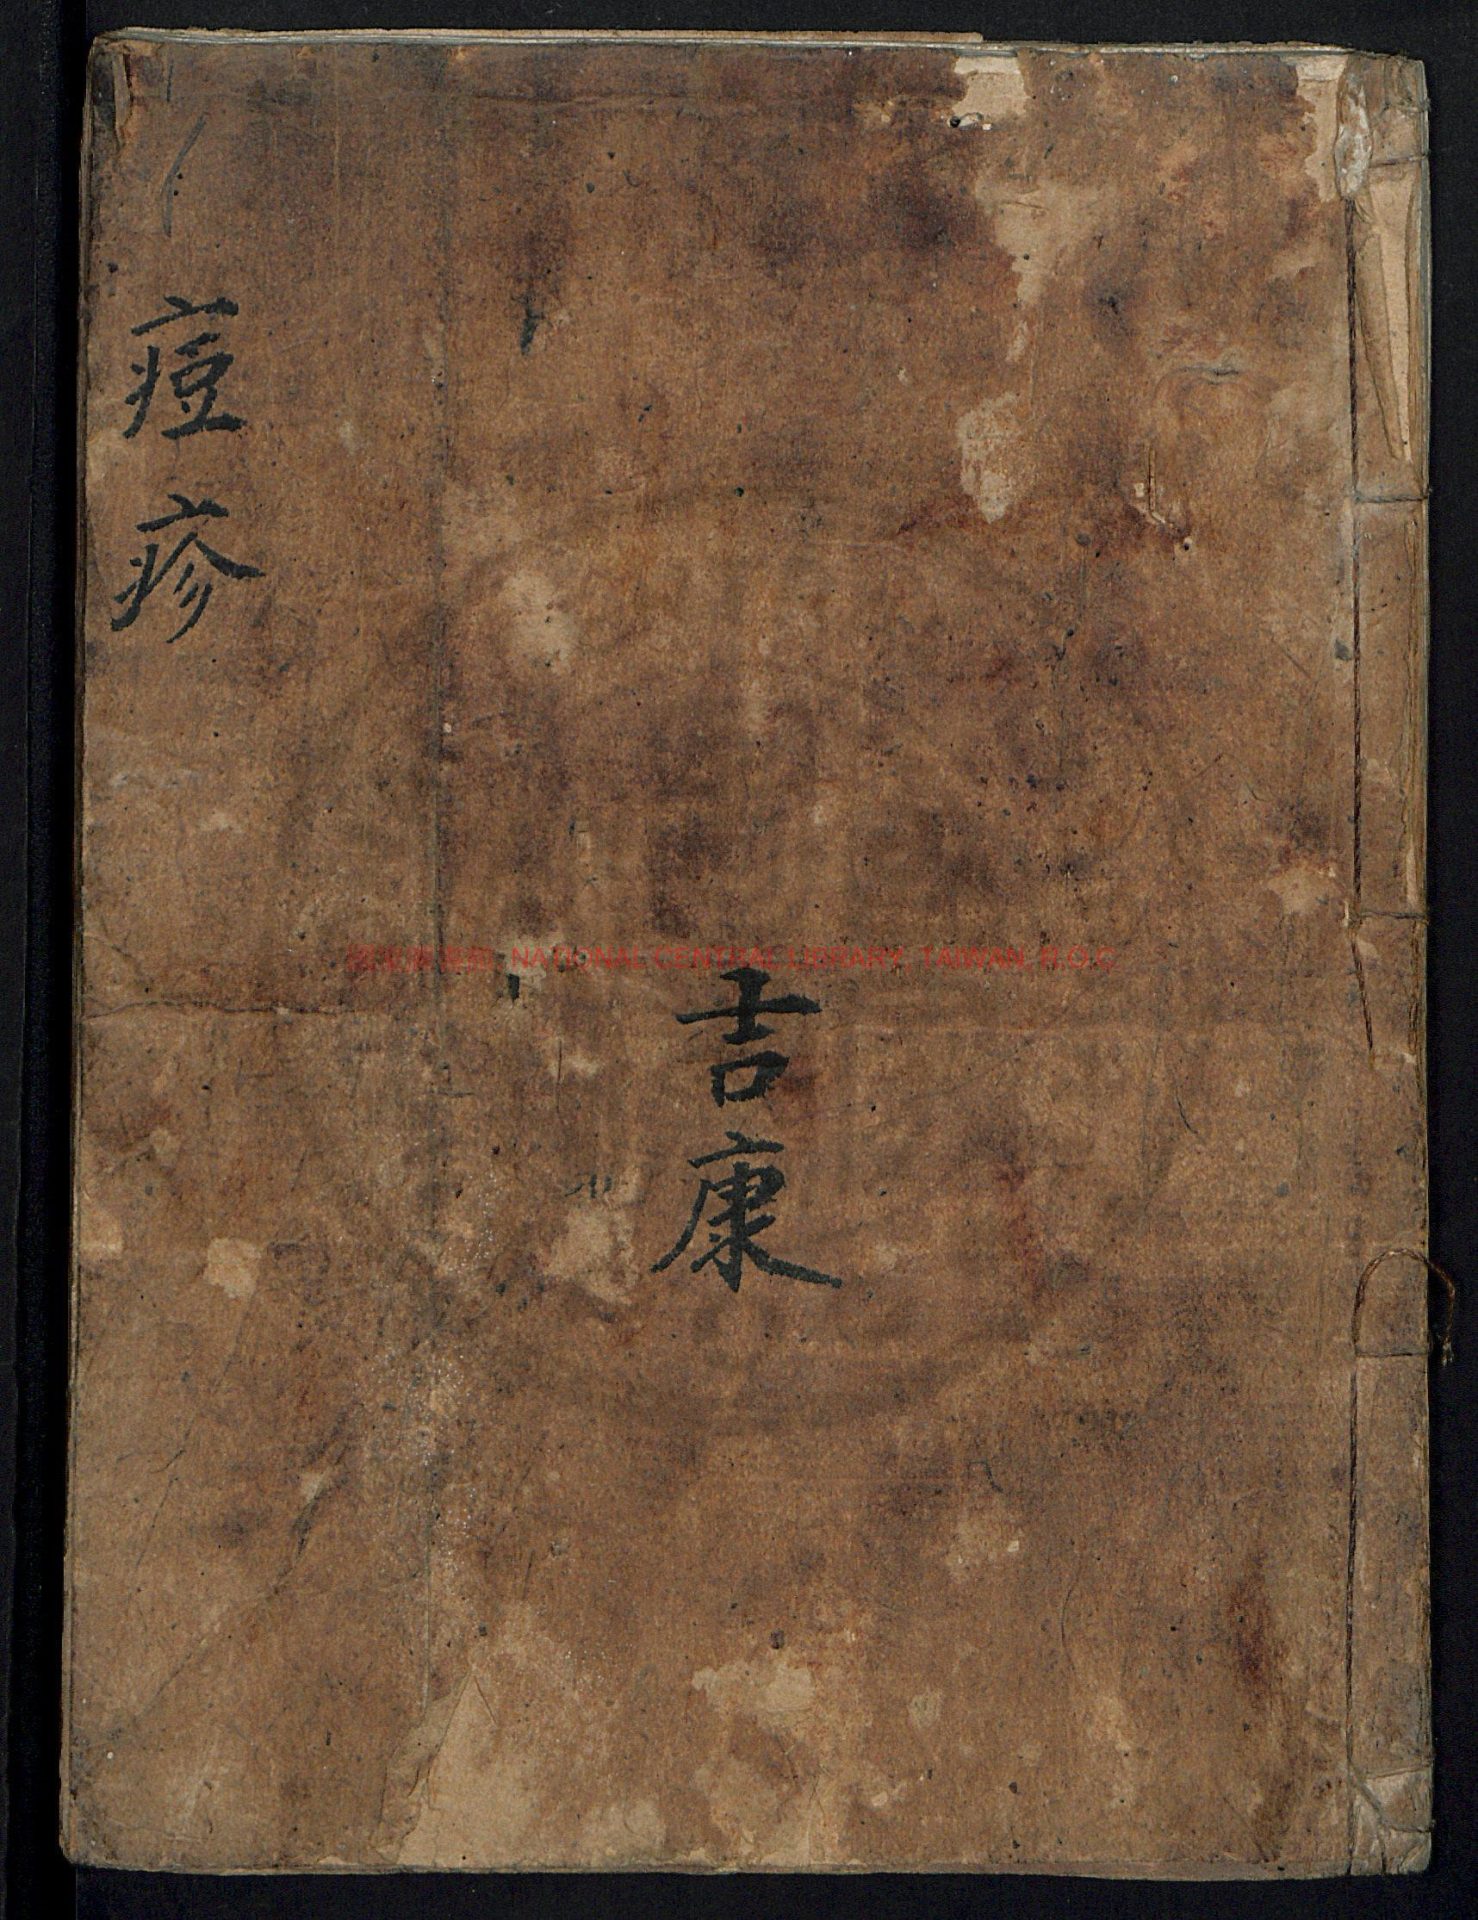 痘疹
吉康
國家圖書館 NATIONAL CENTRAL LIBRARY, TAIWAN, R.O.C